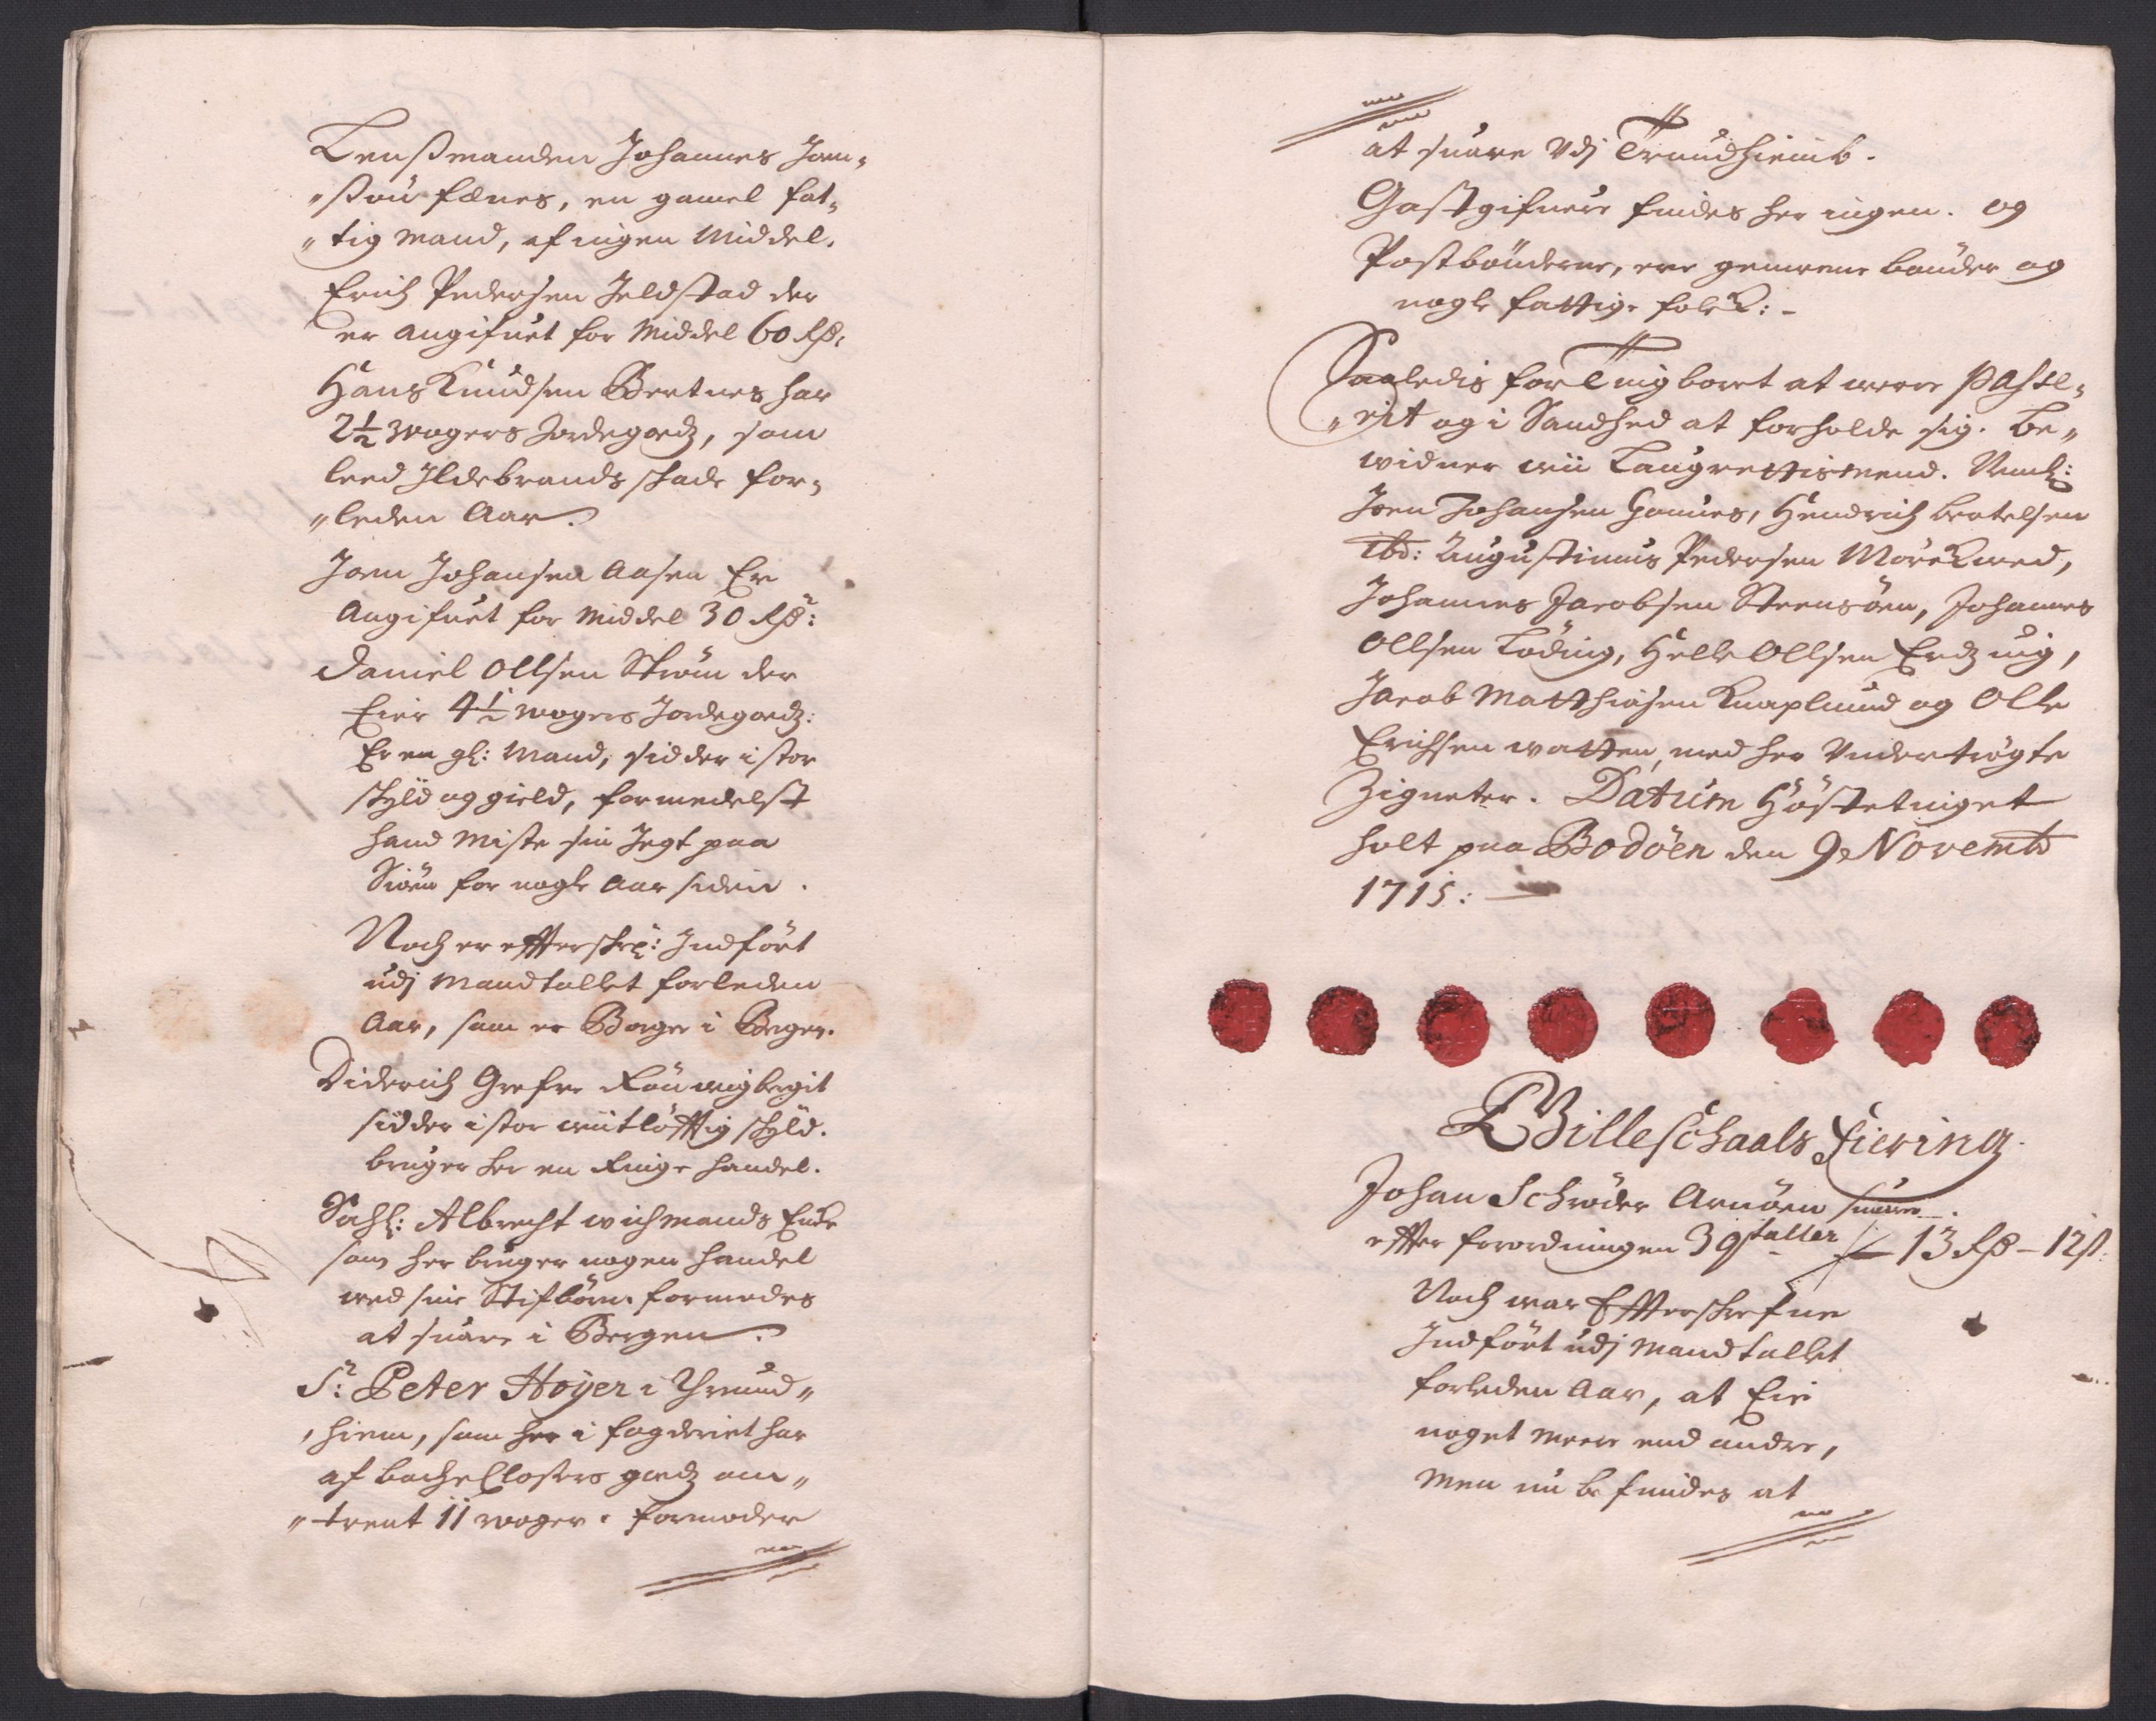 Lensmanden Johannes Joen„
„ssøn fænes, en gamel fat„
„tig Mand, af ingen Middel.
Erich Pedersen Jeldstad der
er angifuet for Middel 60 Rdr:
Hans Knudsen Bertnes har
2½ woger Jordegodz, som
leed Ildebrands skade for„
„leden Aar.
Joen Johansen Aasen Er
Angifuet for Middel 30 Rdr:
Daniel Ollsen Strøm der
Eier 4½ wogers Jordegodz:
Er en gl: Mand, sidder i stor
skyld og gield, formedelst
hand Miste sin Jegt paa
Siøen for nogle Aar siden.
Noch er effterskr: Indført
udj Mandtallet forleden
Aar, som er Borger i Bergen.
Diderich Grefve
sidder i stor wiitløfftig skyld.
bruger her en Ringe handel.
Sahl: Albrecht wichmands Encke
som her bruger nogen handel
wed sine Stifbørn formodes
at suare i Bergen.
Sr: Peter Høyer i Thrund„
„hiem, som her i fogderiet har
af bache Closters godz om„
„trent 11 woger. formoder
at suare Vdj Trundhiemb.
Gastgifuere findes her ingen. og
Postbønderne, ere gemeene bønder og
nogle fattige folck: -
Saaledis for Tingboret at were Passe„
„rit og i Sandhed at forholde sig. be„
widner wii Laugrettismend. Neml:
Joen Johansen Hernes, Hendrich bertelsen
ibd: Augustinus Pedersen Mørckwed,
Johannes Jacobsen Steensøen, Johannes
Ollsen Løding, Helle Ollsen
Jacob Matthiasen Knaplund og Olle
Erichsen watten, med her Vndertrøgte
Zigneter. Datum Høstetinget
holt paa Bodøen den 9de Novemb
1715: —
Billeschaals Fiering.
Johan Schrøder Arnøen suarer
effter forordningen 3 qvtaller — 13 Rdr - 12 s.
Noch war Effterskrefne
Indført udj Mandtallet
forleden Aar, at Eie
noget meere end andre,
Men nu befindes at